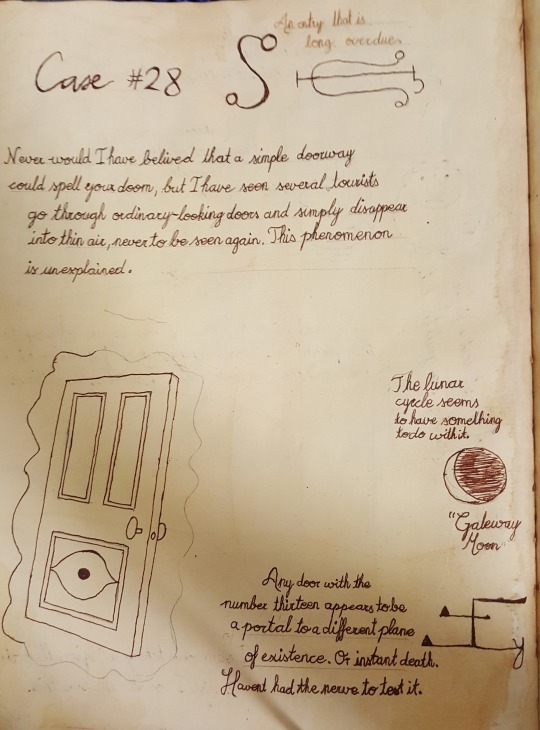 An entry that is
long overdue.
Case #28
Never would I have belived that a simple doorway
could spell your doom, but I have seen several tourists
go through ordinary-looking doors and simply disappear
into thin air, never to be seen again. This phenomenon
is unexplained.
The lunar
cycle seems
to have something
to do with it.
"Gateway
Moon"
Any door with the
number thirteen appears to be
a portal to a different plane
of existence. Or instant death.
Havent had the nerve to test it.